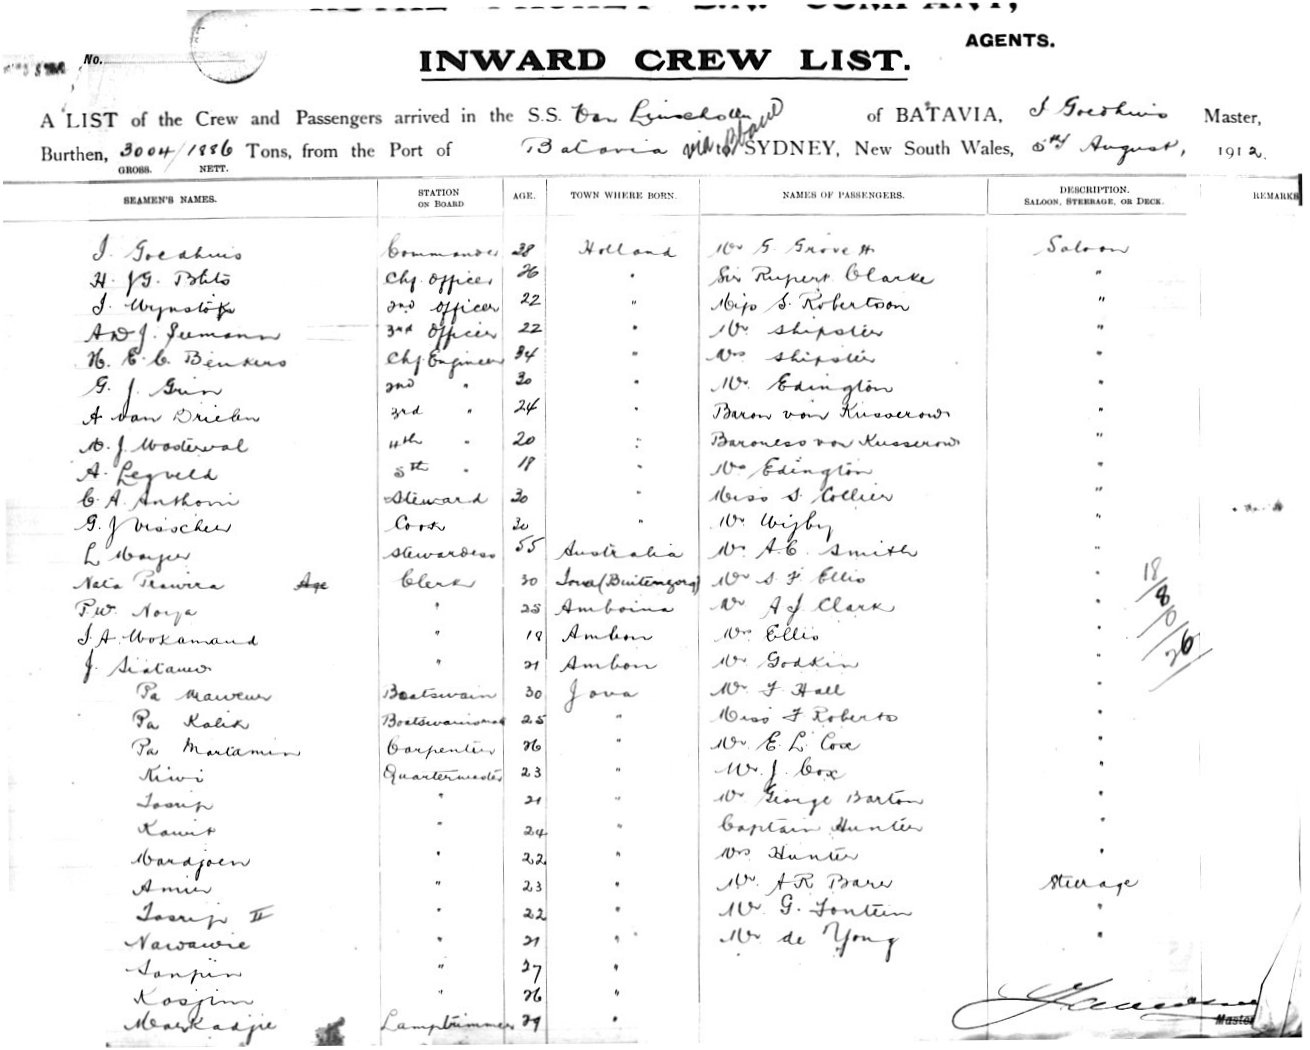 ROYAL PACKET S.N. COMPANY,
AGENTS.
No.
INWARD CREW LIST.
A LIST of the Crew and Passengers arrived in the S.S. Van Linschoten of BATAVIA, J Goedhuis Master,
Burthen, 3004/1886 Tons, from the Port of Batavia via to SYDNEY, New South Wales, 5th August, 1912.
GROSS. NETT.
SEAMEN'S NAMES. STATION ON BOARD AGE. TOWN WHERE BORN. NAMES OF PASSENGERS. DESCRIPTION. SALOON, STEERAGE, OR DECK. REMARKS
J. Goedhuis Commander 38 Holland Mr G. Grove Saloon
H. J G. Chf. Officer 26 " Sir Rupert Clarke "
J. 2nd Officer 22 " Miss S. Robertson "
A D J. Seemann 3rd Officer 22 " Mr Shipster "
H. E. C. Benkers Chf Engineer 34 " Mrs Shipster "
G. J. Grin 2nd " 30 " Mr Edington "
A van Drielen 3rd " 24 " Baron von Kusserow "
A. J. Mosterval 4th " 20 " Baroness von Kusserow "
A. Legveld 5th " 19 " Mrs Edington "
C. A. Anthoni Steward 30 " Miss S. Collier "
G. J Visscher Cook 30 " Mr Wigby "
L Meyer Stewardess 55 Australia Mr A.C. Smith "
Nata Prawira Age Clerk 30 Java (Buitenzorg) Mr S. F. Ellis " 18
P.W. Noya " 25 Amboina Mr A J. Clark " 8
J. A. Wokamaud " 18 Ambon Mrs Ellis " 0
J. " 21 Ambon Mr Godkin " 26
Pa Boatswain 30 Java Mr F Hall "
Pa Kalik Boatswainsmate 25 " Miss F Roberts "
Pa Martamin Carpenter 26 " Mr E. L. Cox "
Kiwi Quartermaster 23 " Mr. J. Cox "
Tasrip " 21 " Mr George Barton "
Kawit " 24 " Captain Hunter "
Mardjoen " 22 " Mrs Hunter "
Amir " 23 " Mr. A R Barr Steerage
Tasrip II " 22 " Mr. G. Fontein "
Nawawie " 21 " Mr de Yong "
Sanpin " 27 "
Kasjim " 26 "
Markadjie Lamptrimmer 29 "
Master